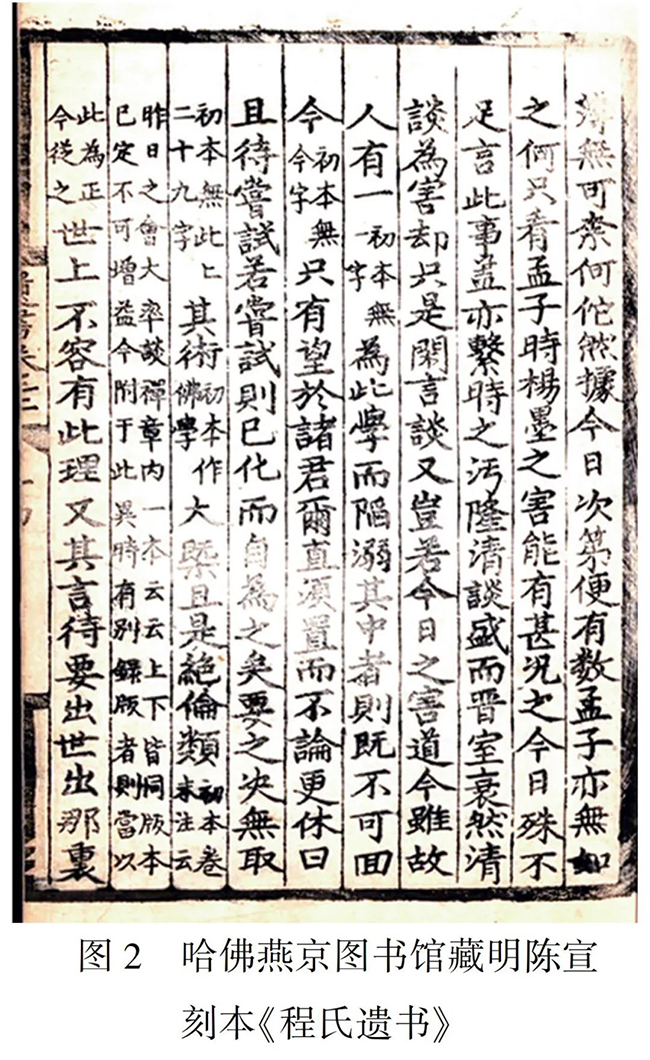 薄無可柰何佗然據今日次第便有数孟子亦無如
之何只看孟子時楊墨之害能有甚况之今日殊不
足言此事盖亦繫時之汚隆清談盛而晋室衰然清
談為害却只是閑言談又豈若今日之害道今雖故
人有一一初本無字為此學而陷溺其中者則既不可回
今初本無今字只有望於諸君爾直須置而不論更休曰
且待嘗試若嘗試則已化而自為之矣要之决無取
初本無此上二十九字其術初本作佛學大槩且是絶倫類初本卷末注云
昨日之會大率談禪章内一本云云上下皆同版本已定不可增益今附于此異時有别錄版者則當以
此為正今從之世上不容有此理又其言待要出世出那裏
图2 哈佛燕京图书馆藏明陈宣
刻本《程氏遗书》